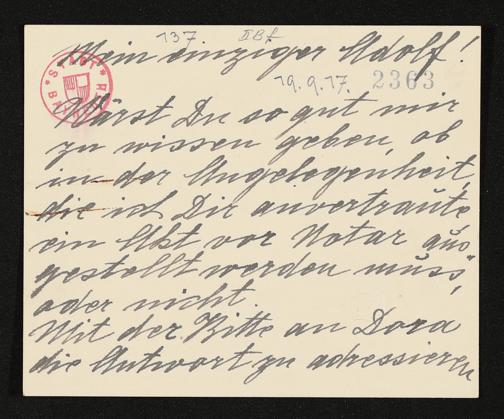 137 IIBf
Mein einziger Adolf!
19.9.17. 2363
Wärst Du so gut mir
zu wissen geben, ob
in der Angelegenheit,
die ich Dir anvertraute
ein Akt vor Notar aus-
gestellt werden muss,
oder nicht.
Mit der Bitte an Dora
die Antwort zu adressieren